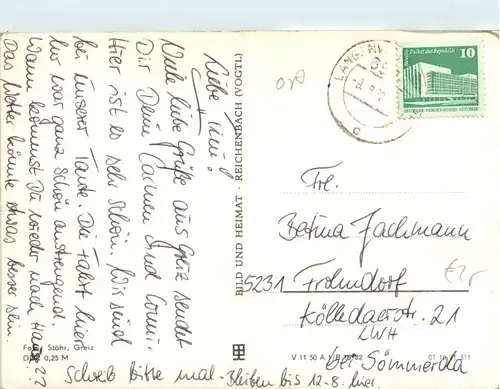 Liebe
Viele liebe Grüße aus Greiz sendet
Dir Deine Carmen und Conni.
Hier ist es sehr schön. Wir sind
bei unserer Tante. Die Fahrt hier
her war ganz schön anstrengend.
Wann kommst Du wieder nach Hause??
Das Wetter könnte etwas besser sein.
Schreib bitte mal. Bleiben bis 12.8. hier.
BILD UND HEIMAT · REICHENBACH (VOGTL)
Foto: Stöhr, Greiz
0,25 M
Palast der Republik
10
Frl.
Betina Jachmann
5231 Frohndorf
Kölledaerstr. 21
LWH
bei Sömmerda
V 11 50 A 1/B
01